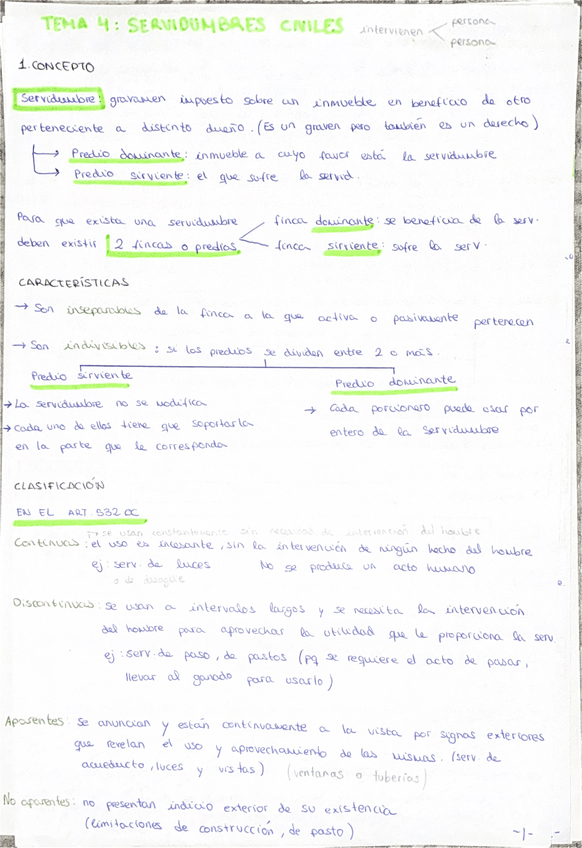 TEMA 4: SERVIDUMBRES CIVILES intervienen persona
persona
1. CONCEPTO
Servidumbre: gravamen impuesto sobre un inmueble en beneficio de otro
perteneciente a distinto dueño. (Es un graven pero también es un derecho)
Predio dominante: inmueble a cuyo favor está la servidumbre
Predio sirviente: el que sufre la servid.
Para que exista una servidumbre finca dominante: se beneficia de la serv.
deben existir 2 fincas o predios finca sirviente: sufre la serv.
CARACTERÍSTICAS
→ Son inseparables de la finca a la que activa o pasivamente pertenecen
→ Son indivisibles: si los predios se dividen entre 2 o más.
Predio sirviente Predio dominante
→ La servidumbre no se modifica → Cada porcionero puede usar por
→ Cada uno de ellos tiene que soportarla entero de la servidumbre
en la parte que le corresponda
CLASIFICACIÓN
EN EL ART 532 CC
→ se usan constantemente sin necesidad de intervención del hombre
Continuas: el uso es incesante, sin la intervención de ningún hecho del hombre
ej: serv. de luces No se produce un acto humano
o de desagüe
Discontinuas: se usan a intervalos largos y se necesita la intervención
del hombre para aprovechar la utilidad que le proporciona la serv
ej: serv. de paso, de pastos (pq se requiere el acto de pasar,
llevar al ganado para usarlo)
Aparentes: se anuncian y están continuamente a la vista por signos exteriores
que revelan el uso y aprovechamiento de las mismas. (serv de
acueducto, luces y vistas) (ventanas o tuberías)
No aparentes: no presentan indicio exterior de su existencia
(limitaciones de construcción, de pasto)
-1-